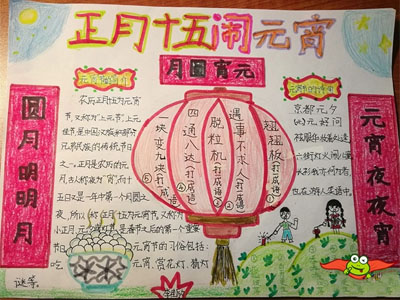 正月十五闹元宵
月圆宵元
圆月明明月
元宵夜夜宵
农历正月十五为元宵
节,又称为"上元节",上元
佳节,是中国汉族和部分
兄弟民族的传统节日
之一,正月是农历的元
月,古人称夜为"宵",而十
五日又是一年中第一个月圆之
夜,所以称正月十五为元宵节。又称为
小正月、元夕或灯节,是春节之后的第一个重要
节日。
元宵节的习俗包括:
吃元宵、赏花灯、猜灯
谜等。
趄趄板(打成语)
①
遇事不求人(打成语)
②
脱粒机(打成语)
③
四通八达(打成语)
④
一块变九块(打成语)
⑤
京都元夕
(元)元好问
袨服华妆着处逢
六街灯火闹儿童
长衫我亦何为者
也在游人笑语中